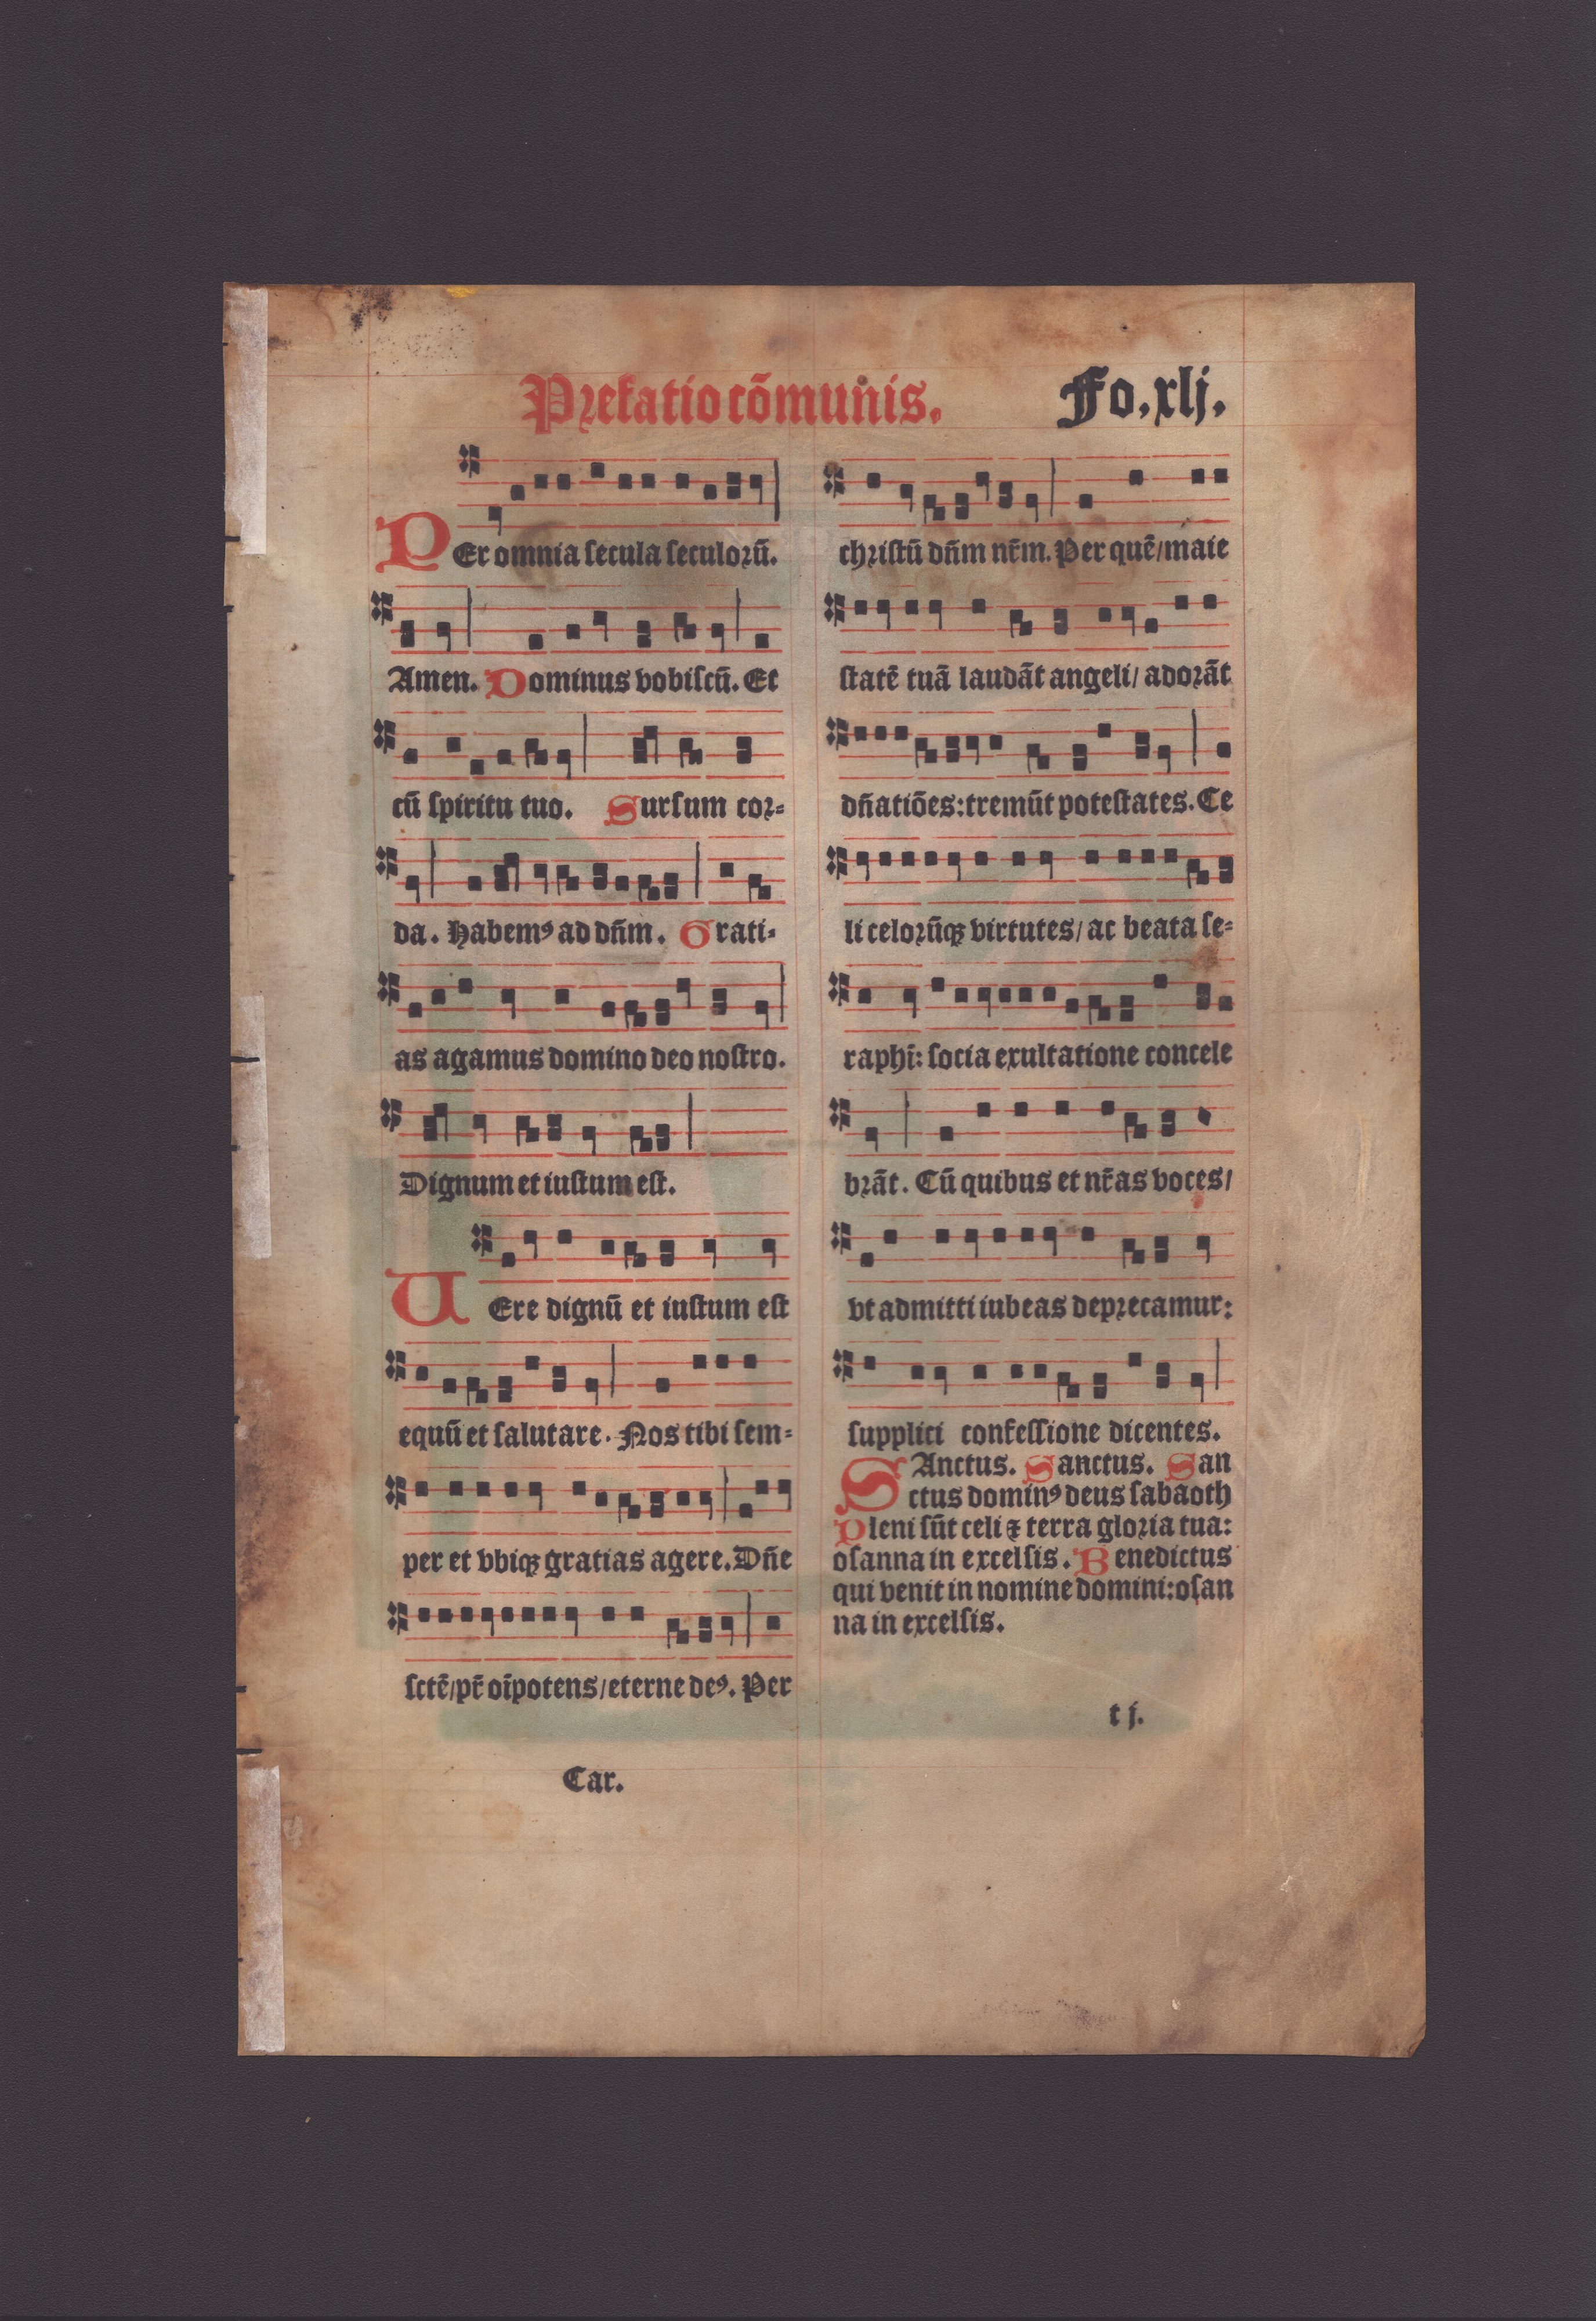 Prefatio cōmunis.
Fo. xlj.
PEr omnia ſecula ſeculorū.
Amen. Dominus vobiſcū. Et
cū ſpiritu tuo. Surſum cor⸗
da. Habemꝰ ad dn̄m. Grati⸗
as agamus domino deo noſtro.
Dignum et iuſtum eſt.
UEre dignū et iuſtum eſt
equū et ſalutare. Nos tibi ſem⸗
per et vbiqꝫ gratias agere. Dn̄e
ſctē/pr̄ oīpotens/eterne deꝰ. Per
Car.
chriſtū dn̄m nr̄m. Per quē/maie
ſtatē tuā laudāt angeli/ adorāt
dn̄atiōes: tremūt poteſtates. Ce
li celorūqꝫ virtutes/ ac beata ſe⸗
raphī: ſocia exultatione concele
brāt. Cū quibus et nr̄as voces/
vt admitti iubeas deprecamur:
ſupplici confeſſione dicentes.
SAnctus. Sanctus. San
ctus dominꝰ deus ſabaoth
Pleni ſūt celi ⁊ terra gloria tua:
oſanna in excelſis. Benedictus
qui venit in nomine domini: oſan
na in excelſis.
t j.